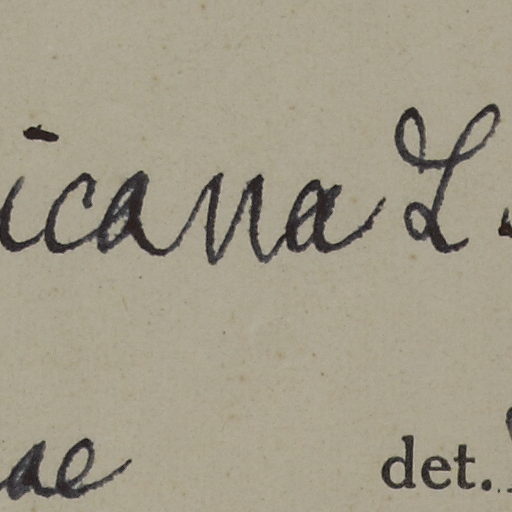 icana L.
ae det.